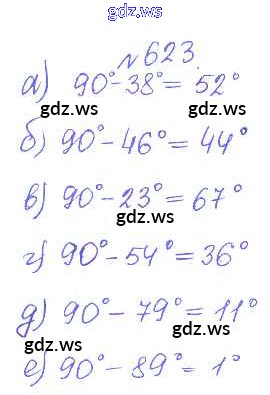 gdz.ws
№ 623.
а) 90°-38°= 52°
gdz.ws
б) 90°-46°= 44°
в) 90°-23°= 67°
gdz.ws
г) 90°-54°= 36°
д) 90°-79°= 11°
gdz.ws
е) 90°-89°= 1°